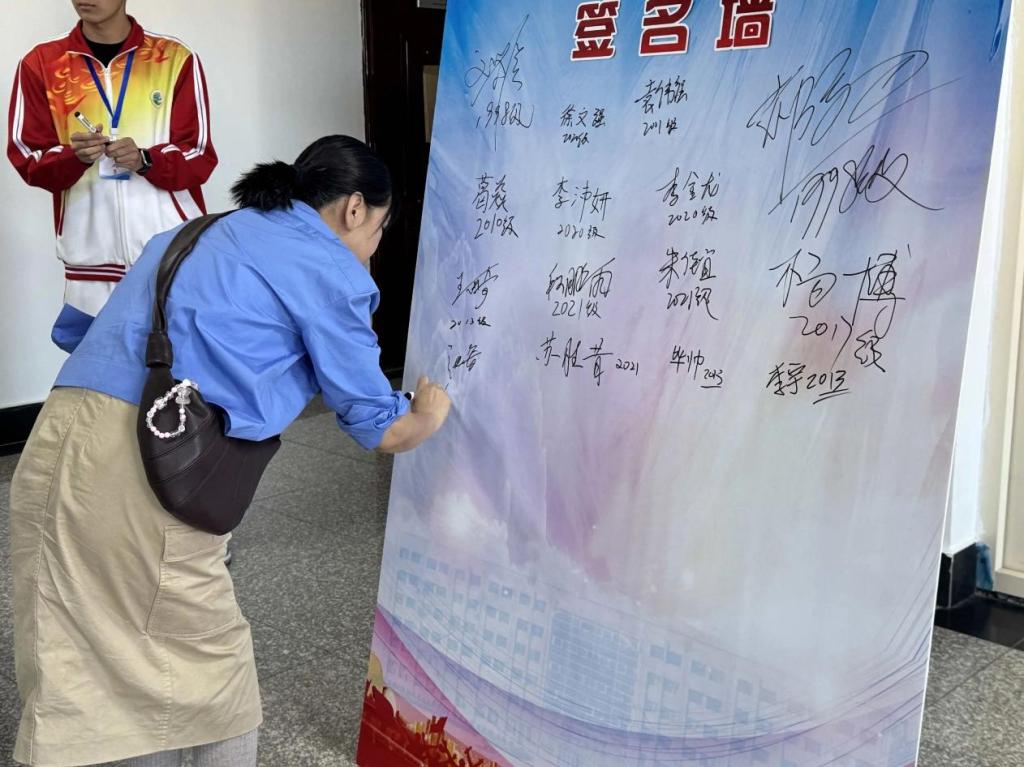 签名墙
1998级
徐文强
2020级
袁伟强
2011级
1998级
葛蕊
2010级
李沛妍
2020级
李金龙
2020级
2021级
朱信宜
2021级
杨博
2017级
王雪
2013级
苏胜茸 2021
毕帅 2013
李宁 2013